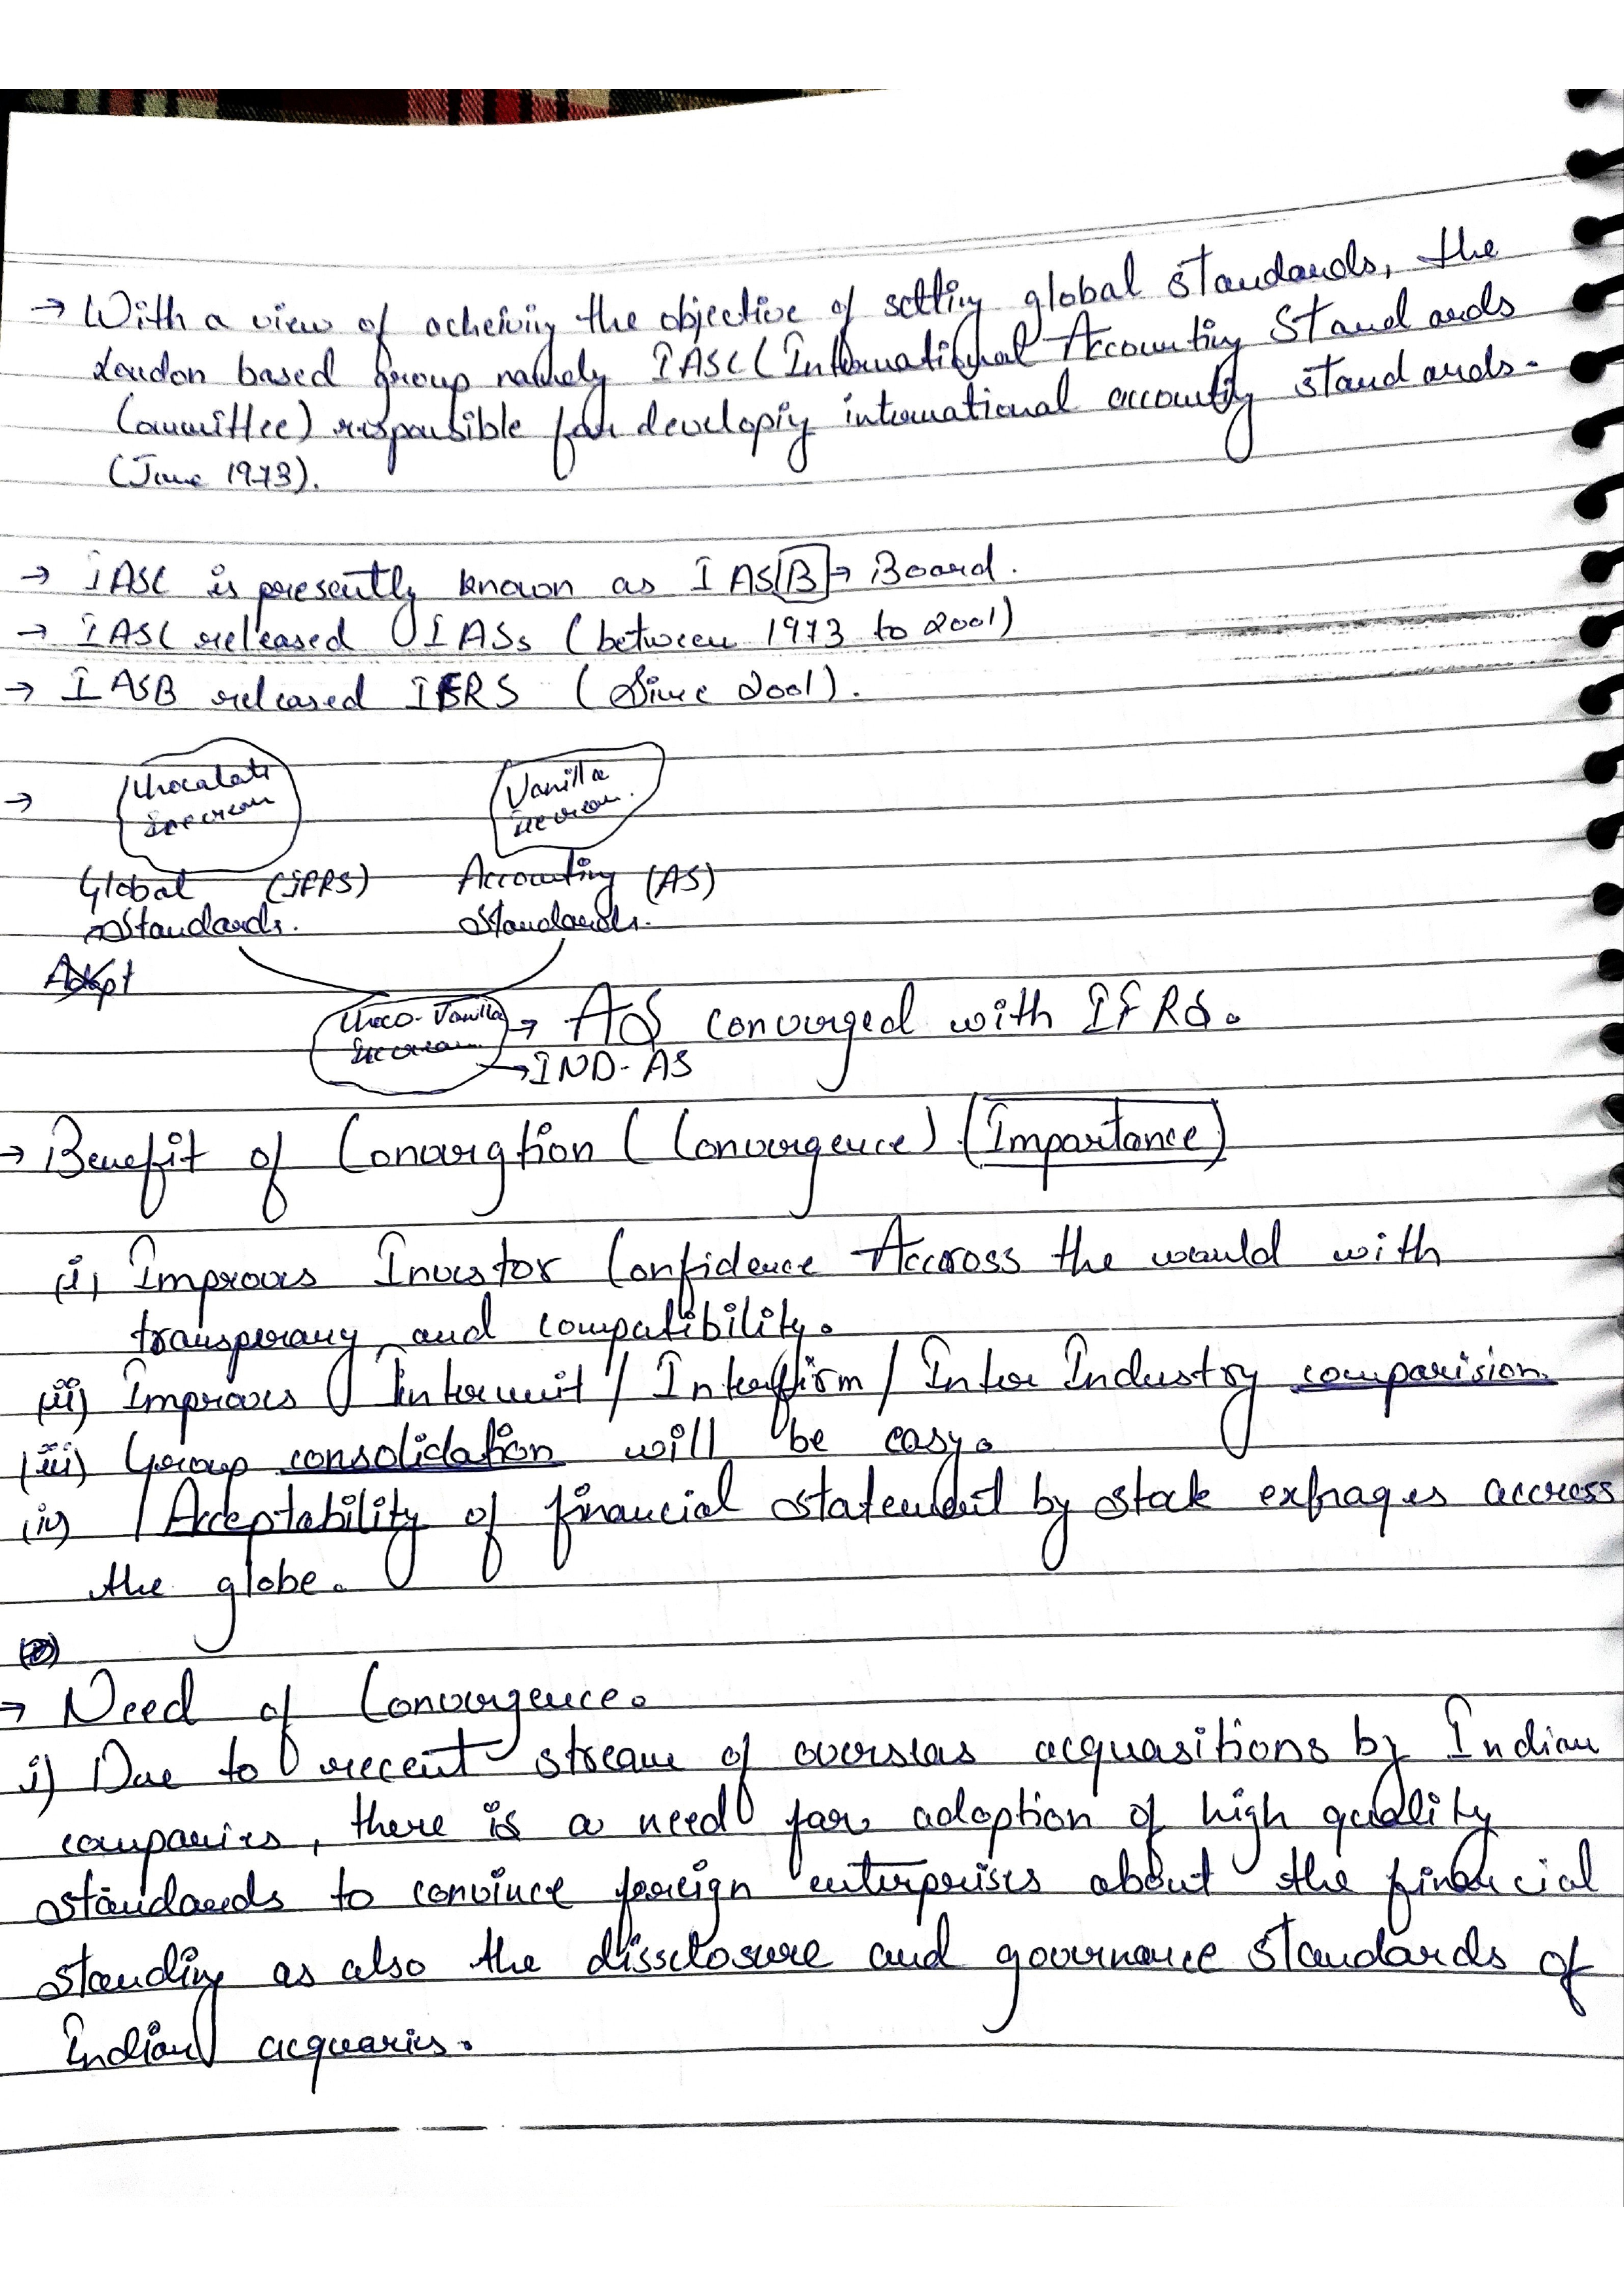 → With a view of acheiviy the objective of settiy global standards, the
London based group namely IASC (International Accounting Standards
Committee) responsible for developiy international accounty standards.
(June 1973).
→ IASC is presently known as IAS[B] → Board.
→ IASC released IASs (between 1973 to 2001)
→ IASB released IFRS (Since 2001).
→ Chocalate Vanilla
Icecream Icecream.
Global (IFRS) Accounting (AS)
Standards. Standards.
Adopt
Choco-Vanilla → AS converged with IFRS.
Icecream → IND-AS
→ Benefit of Convergtion (Convergence) (Importance)
(i) Improves Investor Confidence Accross the would with
transperancy and compatibility.
(ii) Improves Interunit / Interfirm / Inter Industry comparision.
(iii) Group consolidation will be easy.
(iv) Acceptability of financial statement by stock exhages accress
the globe.
→ Need of Convergence.
i) Due to recent stream of overseas acquasitions by Indian
companies, there is a need for adoption of high quality
standards to convince foreign enterprises about the financial
standiy as also the dissclosure and governance standards of
Indian acquaries.